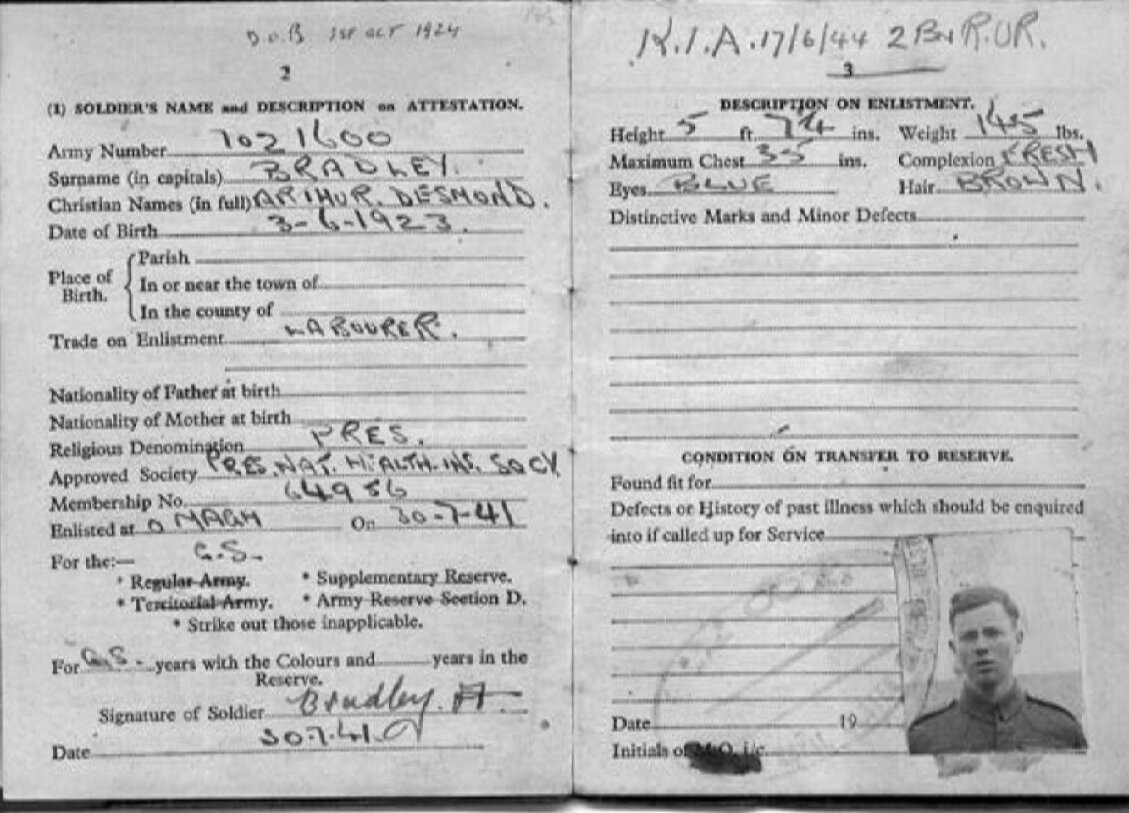 D.O.B 1ST OCT 1924
2
(1) SOLDIER'S NAME and DESCRIPTION on ATTESTATION.
Army Number 7021600
Surname (in capitals) BRADLEY.
Christian Names (in full) ARTHUR. DESMOND.
Date of Birth 3-6-1923.
Place of Birth.
Parish
In or near the town of
In the county of
Trade on Enlistment LABOURER.
Nationality of Father at birth
Nationality of Mother at birth
Religious Denomination PRES.
Approved Society PRES. NAT. HEALTH. INS. SOCY
Membership No. 64986
Enlisted at OMAGH On 30-7-41
For the:— G.S.
* Regular Army. * Supplementary Reserve.
* Territorial Army. * Army Reserve Section D.
* Strike out those inapplicable.
For G.S. years with the Colours and years in the
Reserve.
Signature of Soldier Bradley. A
Date 30.7.41
K.I.A. 17/6/44 2 BN R.UR.
3
DESCRIPTION ON ENLISTMENT.
Height 5 ft. 7¼ ins. Weight 145 lbs.
Maximum Chest 35 ins. Complexion FRESH
Eyes BLUE Hair BROWN.
Distinctive Marks and Minor Defects
CONDITION ON TRANSFER TO RESERVE.
Found fit for
Defects or History of past illness which should be enquired
into if called up for Service
Date 19
Initials of M.O. i/c